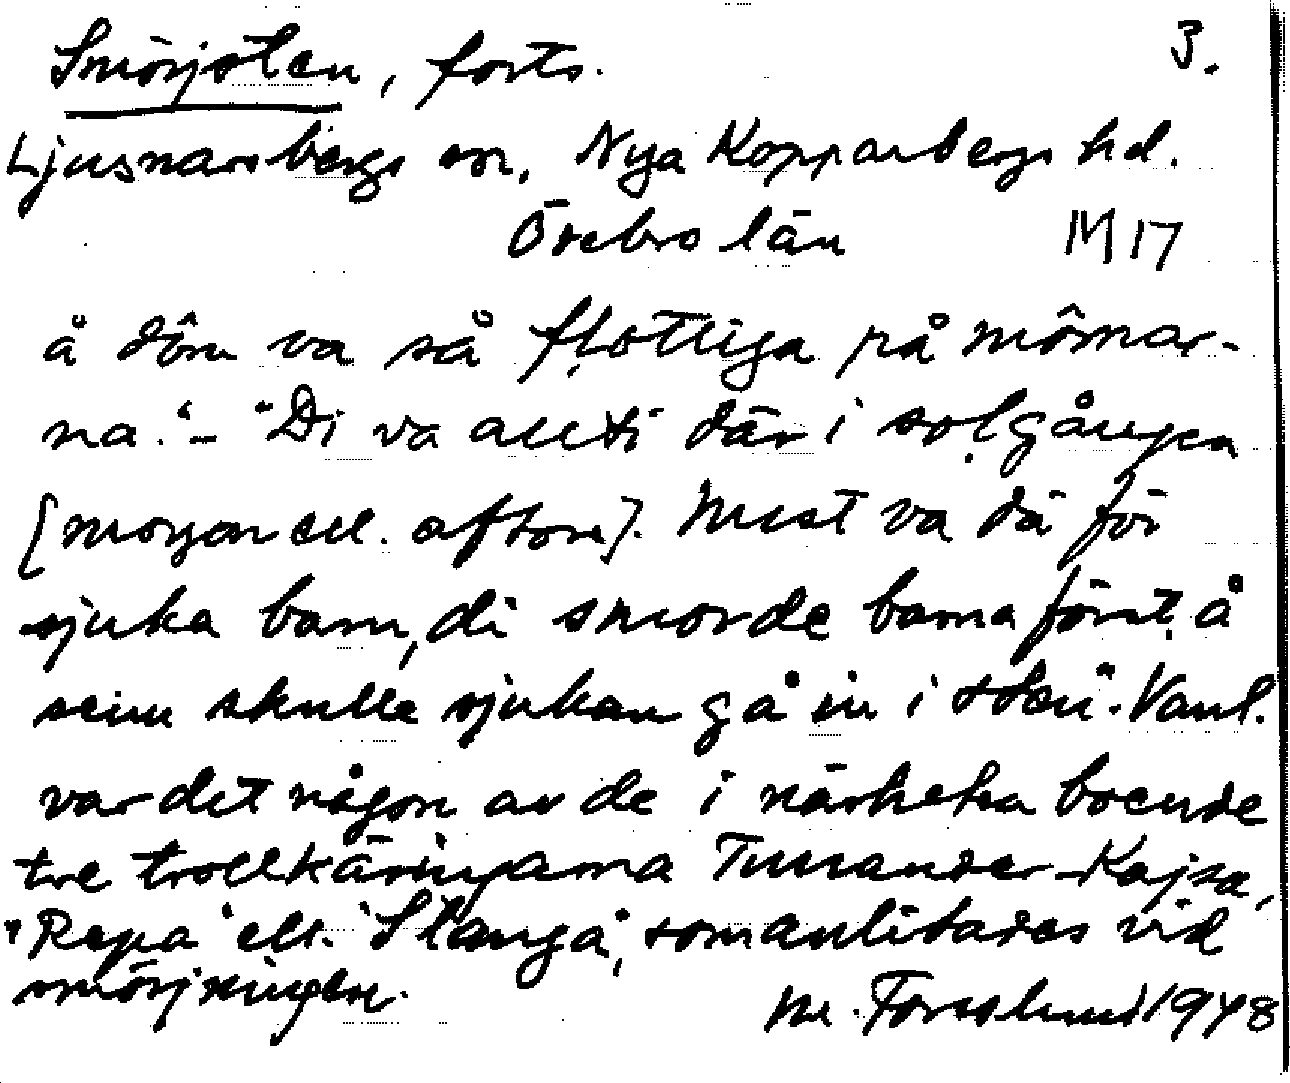 Smörjsten, forts. 3.
Ljusnarsbergs sn, Nya Kopparbergs hd.
Örebro län M 17
å dôm va så flottiga på mômar-
na." - "Di va allti där i solgången
[morgon ell. afton]. Mest va dä för
sjuka barn, di smorde barna först, å
sein skulle sjukan gå in i sten". Vanl.
var det någon av de i närheten boende
tre trollkäringarna Tussander-Kajsa,
"Repa" ell. "Stånga", som anlitades vid
smörjningen.
M. Forsslund 1948